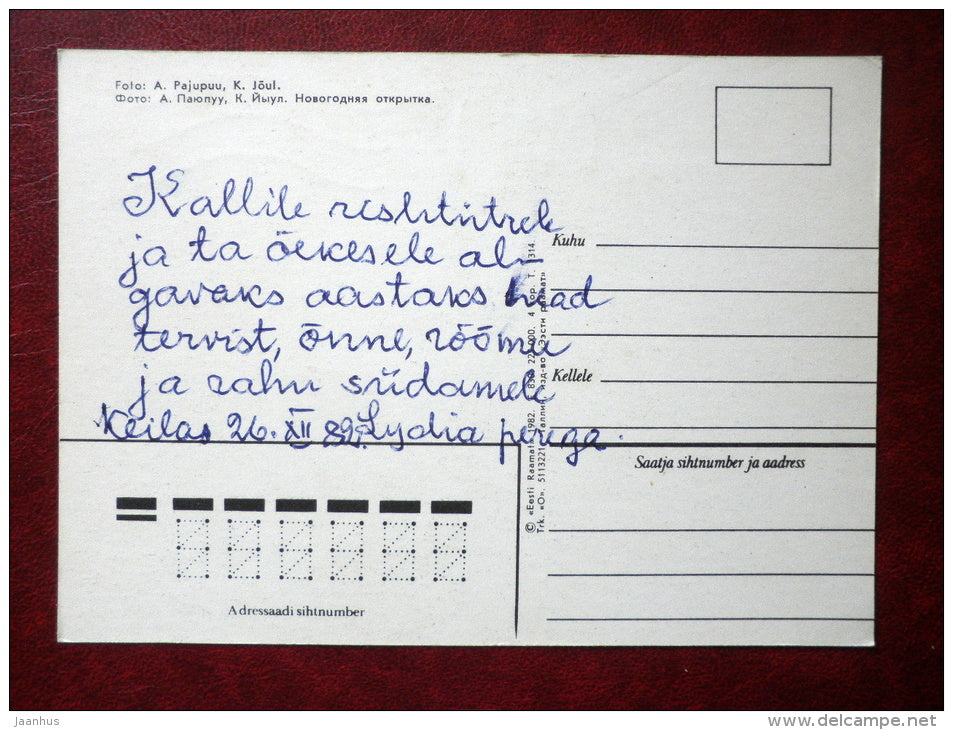 Foto: A. Pajupuu, K. Jõul.
Фото: А. Паюпуу, К. Йыул. Новогодняя открытка.
Kallile
ja ta õekesele al-
gavaks aastaks head
tervist, õnne, rõõmu
ja rahu südamele
Keilas 26. XII 82. Lydia perega.
Kuhu
Kellele
Saatja sihtnumber ja aadress
Adressaadi sihtnumber
© «Eesti Raamat», 1982.
Trk. «O». 5113221 Таллин, изд-во «Ээсти раамат»
jaanhus
www.delcampe.net